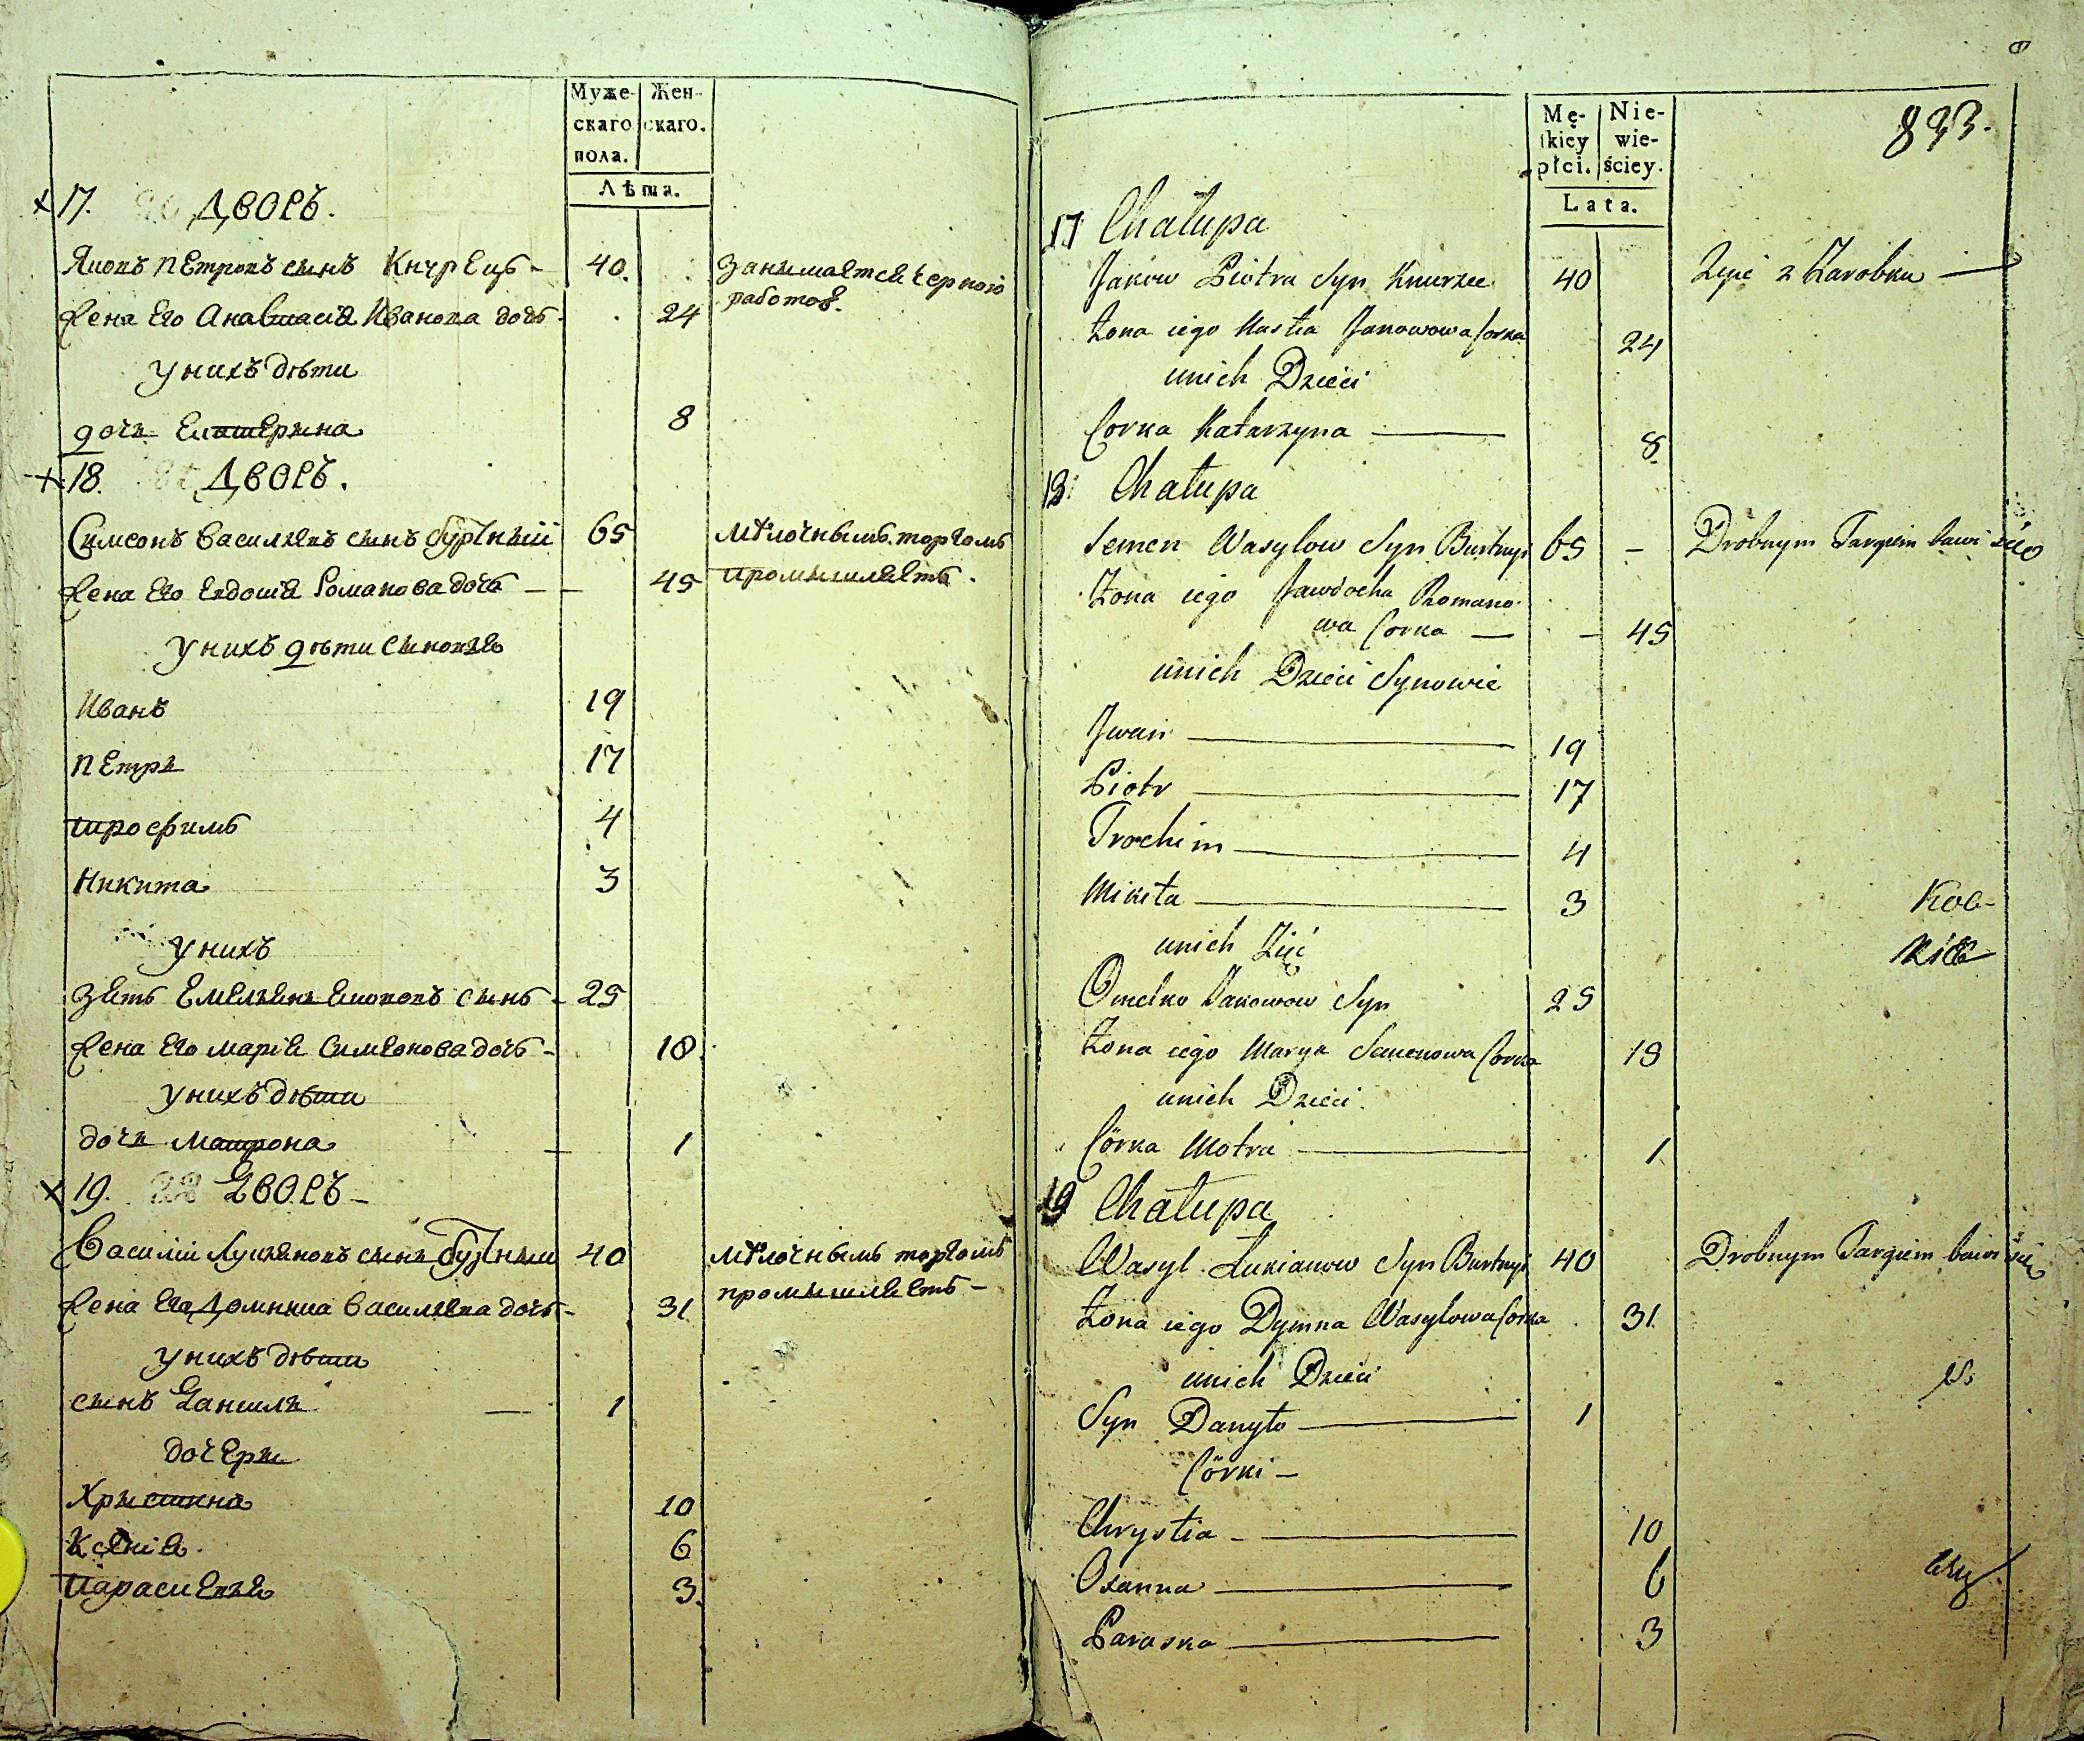 Муже-
скаго
пола.
Жен-
скаго.
Лѣта.
17. ДВОРЪ.
Яковъ Петровъ сынъ Кнурецъ - 40. занимается черною
работою.
Жена Его Анастасія Иванова дочь - 24
у нихъ дѣти
дочь Екатерына 8
18. ДВОРЪ.
Симеонъ Василіевъ сынъ Буртный 65 мѣлочнымъ торгомъ
промышляетъ.
Жена Его Евдокія Романова дочь — — 45
у нихъ дѣти сыновья
Иванъ 19
Петръ 17
трофимъ 4
Никита 3
у нихъ
зять Емельянъ Яковovъ сынъ - 25
Жена Его марія Симеонова дочь - 18
у нихъ дѣти
дочь матрона — 1
19. ДВОРЪ -
Василій Лукьяновъ сынъ Буртный 40 мѣлочнымъ торгомъ
промышляетъ -
Жена Его Домникиа Василіева дочь - 31
у нихъ дѣти
сынъ Данилъ — 1
дочеры
Хрыстина 10
Ксенія 6
Парасkевія 3.
Mę-
skiey
płci.
Nie-
wie-
ściey.
Lata.
893.
17 Chałupa
Jakow Piotra Syn Knurzec 40 Żyie z Zarobku —
Żona iego Nastia Janowowa Corka 24
unich Dzieci
Corka Katarzyna — 8
18 Chałupa
Semen Wasylow Syn Burtnyi 65 — Drobnym Targiem bawi się
Żona iego Jawdocha Romano-
wa Corka — — 45
unich Dzieci Synowie
Jwan — 19
Piotr — 17
Trochim — 4
Mikita — 3
unich Zięć
Omelko Jakowow Syn 25
Żona iego Marya Semenowa Corka 18
unich Dzieci
Córka Motra — 1
19 Chałupa
Wasyl Łukianow Syn Burtnyi 40 Drobnym Targiem bawi się
Żona iego Dymna Wasylowa Corka 31
unich Dzieci
Syn Danyło — 1
Córki —
Chrystia — 10
Oxanna — 6
Paraska — 3